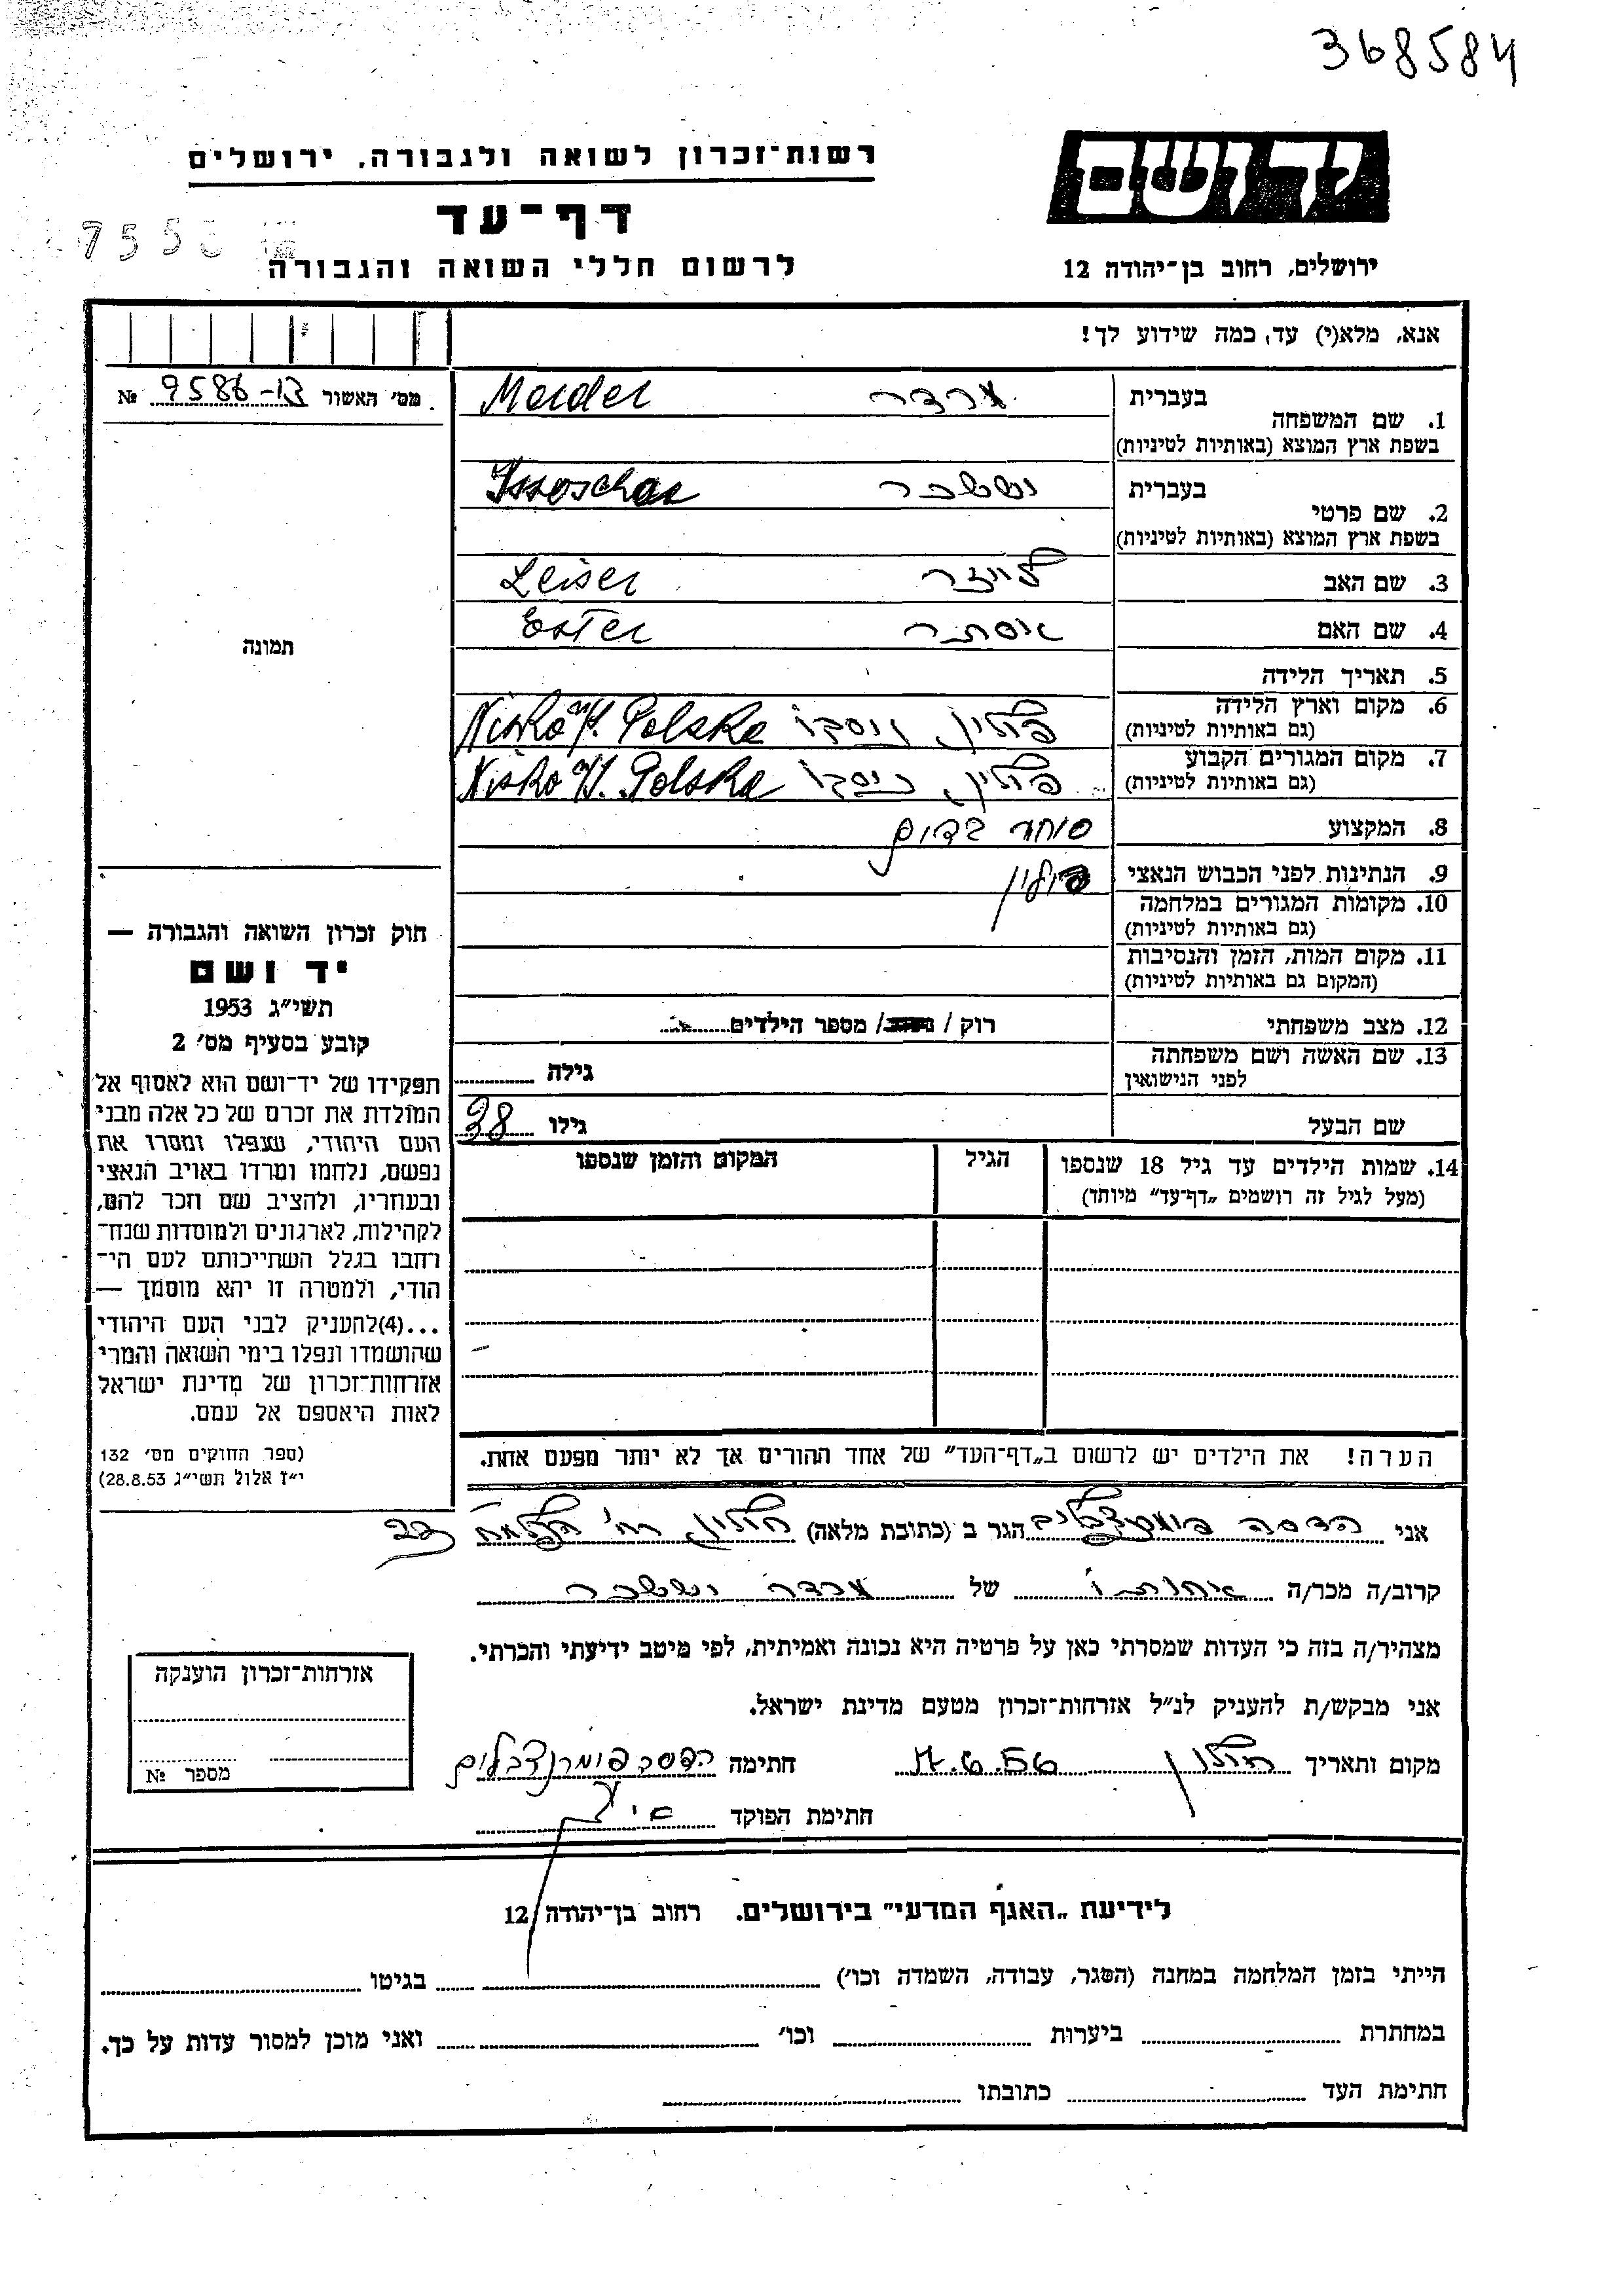 368584
יד ושם
רשות־זכרון לשואה ולגבורה, ירושלים
דף־עד
לרשום חללי השואה והגבורה
ירושלים, רחוב בן־יהודה 12
אנא, מלא(י) עד, כמה שידוע לך!
מס׳ האשור 9586-13 №
1. שם המשפחה בעברית מרדר Merder
בשפת ארץ המוצא (באותיות לטיניות)
2. שם פרטי בעברית יששכר Issoschar
בשפת ארץ המוצא (באותיות לטיניות)
3. שם האב לייזר Leiser
4. שם האם אסתר Ester
5. תאריך הלידה
6. מקום וארץ הלידה פולין, ניסקו Nisko n/S. Polska
(גם באותיות לטיניות)
7. מקום המגורים הקבוע פולין, ניסקו Nisko n/S. Polska
(גם באותיות לטיניות)
8. המקצוע סוחר בדים
9. הנתינות לפני הכבוש הנאצי פולין
10. מקומות המגורים במלחמה
(גם באותיות לטיניות)
11. מקום המות, הזמן והנסיבות
(המקום גם באותיות לטיניות)
12. מצב משפחתי רוק / / מספר הילדים
13. שם האשה ושם משפחתה
לפני הנישואין
גילה
שם הבעל
גילו 38
14. שמות הילדים עד גיל 18 שנספו
(מעל לגיל זה רושמים „דף־עד” מיוחד)
הגיל
המקום והזמן שנספו
הערה! את הילדים יש לרשום ב„דף־העד” של אחד ההורים אך לא יותר מפעם אחת.
תמונה
חוק זכרון השואה והגבורה —
יד ושם
תשי״ג 1953
קובע בסעיף מס׳ 2
תפקידו של יד־ושם הוא לאסוף אל
המולדת את זכרם של כל אלה מבני
העם היהודי, שנפלו ומסרו את
נפשם, נלחמו ומרדו באויב הנאצי
ובעוזריו, ולהציב שם וזכר להם,
לקהילות, לארגונים ולמוסדות שנח־
רבו בגלל השתייכותם לעם הי־
הודי, ולמטרה זו יהא מוסמך —
...(4)להעניק לבני העם היהודי
שהושמדו ונפלו בימי השואה והמרי
אזרחות־זכרון של מדינת ישראל
לאות היאספם אל עמם.
(ספר החוקים מס׳ 132
י״ז אלול תשי״ג 28.8.53)
אני הדסה פומרנצבלום הגר ב (כתובת מלאה) חולון, רח׳
קרוב/ה מכר/ה אחותו של מרדר יששכר
מצהיר/ה בזה כי העדות שמסרתי כאן על פרטיה היא נכונה ואמיתית, לפי מיטב ידיעתי והכרתי.
אני מבקש/ת להעניק לנ״ל אזרחות־זכרון מטעם מדינת ישראל.
מקום ותאריך חולון 17.6.56 חתימה הדסה פומרנצבלום
חתימת הפוקד
אזרחות־זכרון הוענקה
מספר №
לידיעת „האגף המדעי” בירושלים. רחוב בן־יהודה 12
הייתי בזמן המלחמה במחנה (הסגר, עבודה, השמדה וכו׳) בגיטו
במחתרת ביערות וכו׳ ואני מוכן למסור עדות על כך.
חתימת העד כתובתו